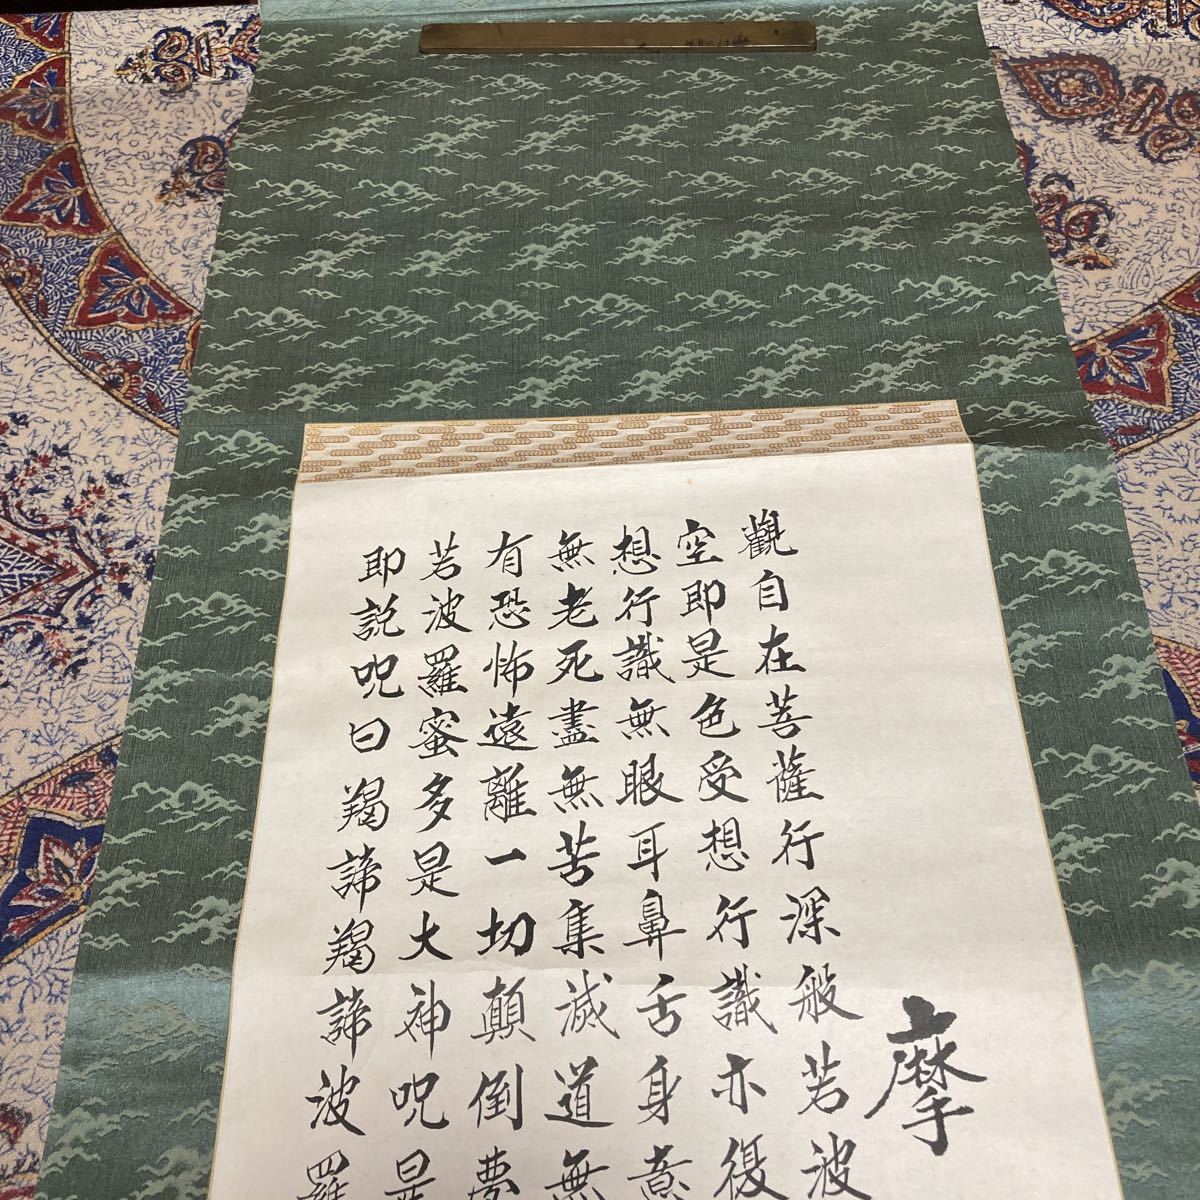 摩
觀自在菩薩行深般若波
空即是色受想行識亦復
想行識無眼耳鼻舌身意
無老死盡無苦集滅道無
有恐怖遠離一切顛倒夢
若波羅蜜多是大神呪是
即説呪曰羯諦羯諦波羅